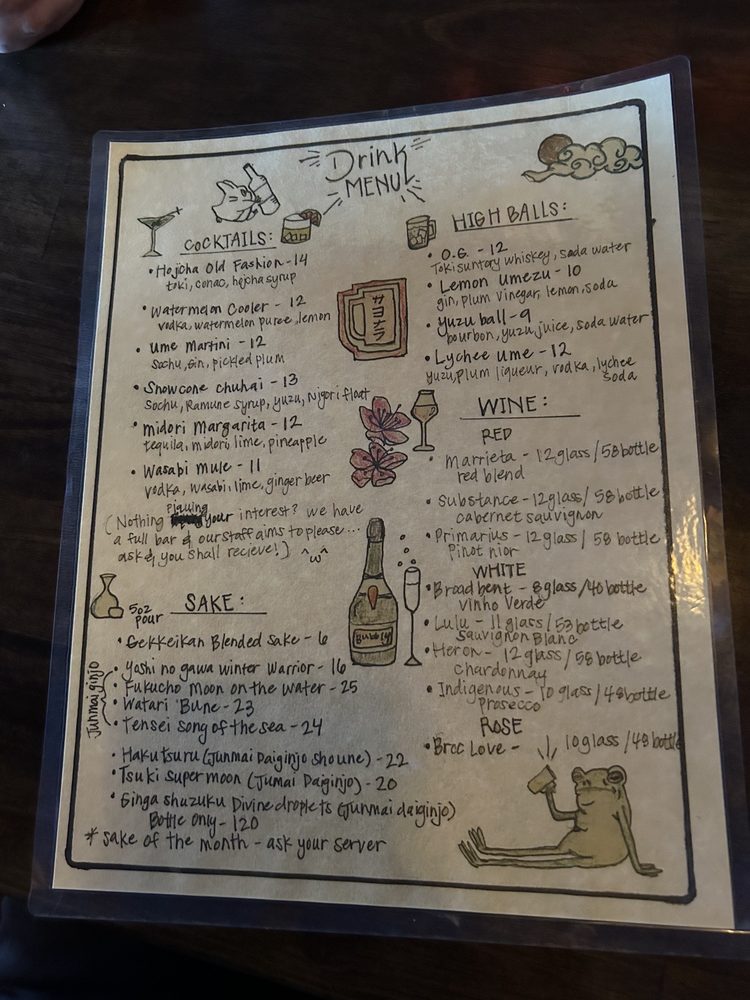 Drink
MENU
COCKTAILS:
• Hojicha Old Fashion - 14
toki, conac, hojicha syrup
• Watermelon Cooler - 12
vodka, watermelon puree, lemon
• Ume Martini - 12
Sochu, Gin, pickled plum
• Snowcone chuhai - 13
Sochu, Ramune syrup, yuzu, Nigori float
• midori Margarita - 12
tequila, midori, lime, pineapple
• Wasabi mule - 11
vodka, wasabi, lime, ginger beer
(Nothing Piquing your interest? we have
a full bar & our staff aims to please...
ask & you shall recieve!) ^ω^
サヨナラ
5oz
pour
SAKE:
• Gekkeikan Blended Sake - 6
Junmai ginjo
• Yoshi no gawa winter Warrior - 16
• Fukucho Moon on the Water - 25
• Watari Bune - 23
• Tensei song of the sea - 24
• Hakutsuru (Junmai Daiginjo shoune) - 22
• Tsuki super moon (Jumai Daiginjo) - 20
• Ginga shuzuku Divine droplets (Junmai daiginjo)
Bottle Only - 120
* sake of the month - ask your server
HIGH BALLS:
• O.G. - 12
Toki suntory whiskey, soda water
• Lemon Umezu - 10
gin, plum vinegar, lemon, soda
• Yuzu ball - 9
bourbon, yuzu juice, soda water
• Lychee ume - 12
yuzu, plum liqueur, vodka, lychee
soda
WINE:
RED
• Marrieta - 12 glass / 58 bottle
red blend
• Substance - 12 glass / 58 bottle
cabernet sauvignon
• Primarius - 12 glass / 58 bottle
Pinot nior
WHITE
• Broadbent - 8 glass / 40 bottle
Vinho Verde
• Lulu - 11 glass / 53 bottle
Sauvignon Blanc
• Heron - 12 glass / 58 bottle
chardonnay
• Indigenous - 10 glass / 48 bottle
Prosecco
ROSE
• Broc Love - 10 glass / 48 bottle
Bubbly